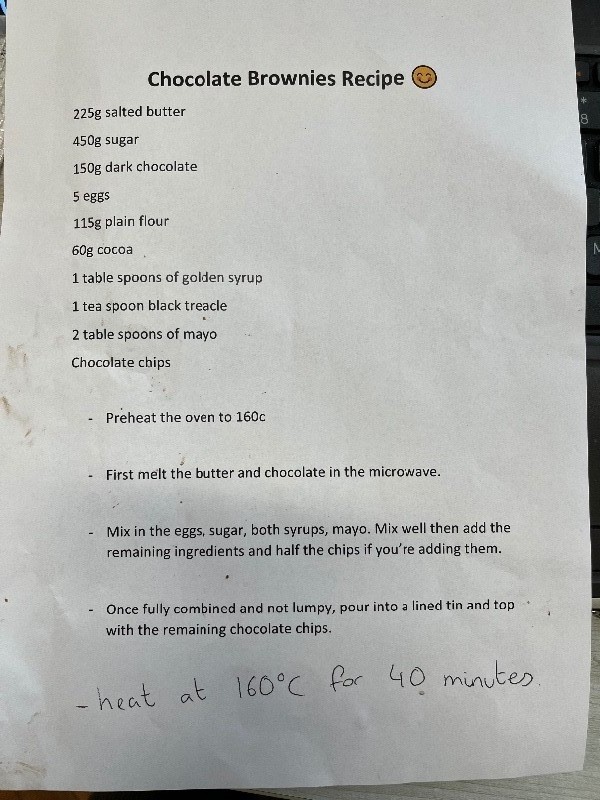 Chocolate Brownies Recipe 😊
225g salted butter
450g sugar
150g dark chocolate
5 eggs
115g plain flour
60g cocoa
1 table spoons of golden syrup
1 tea spoon black treacle
2 table spoons of mayo
Chocolate chips
- Preheat the oven to 160c
- First melt the butter and chocolate in the microwave.
- Mix in the eggs, sugar, both syrups, mayo. Mix well then add the
remaining ingredients and half the chips if you're adding them.
- Once fully combined and not lumpy, pour into a lined tin and top
with the remaining chocolate chips.
- heat at 160°C for 40 minutes.
*
8